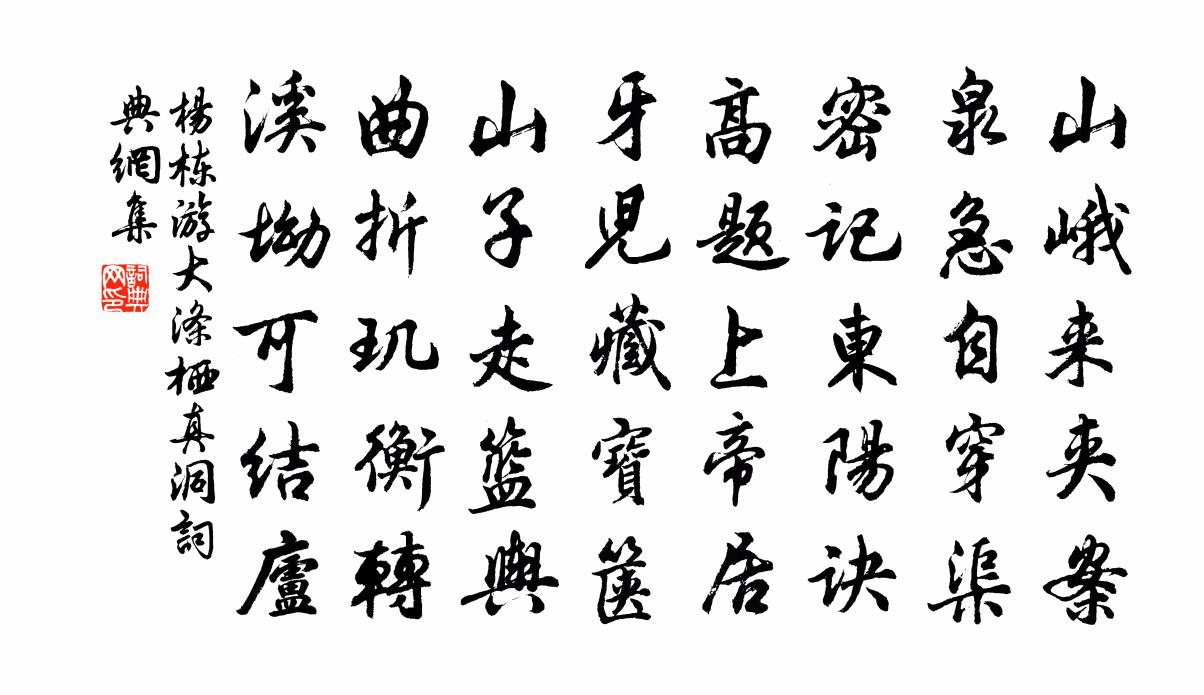 山峨来夾案
泉急自穿渠
密记東陽诀
高题上帝居
牙兒藏寶箧
山子走籃輿
曲折玑衡轉
溪坳可结廬
楊栋游大涤栖真洞詞
典網集
詞典网印